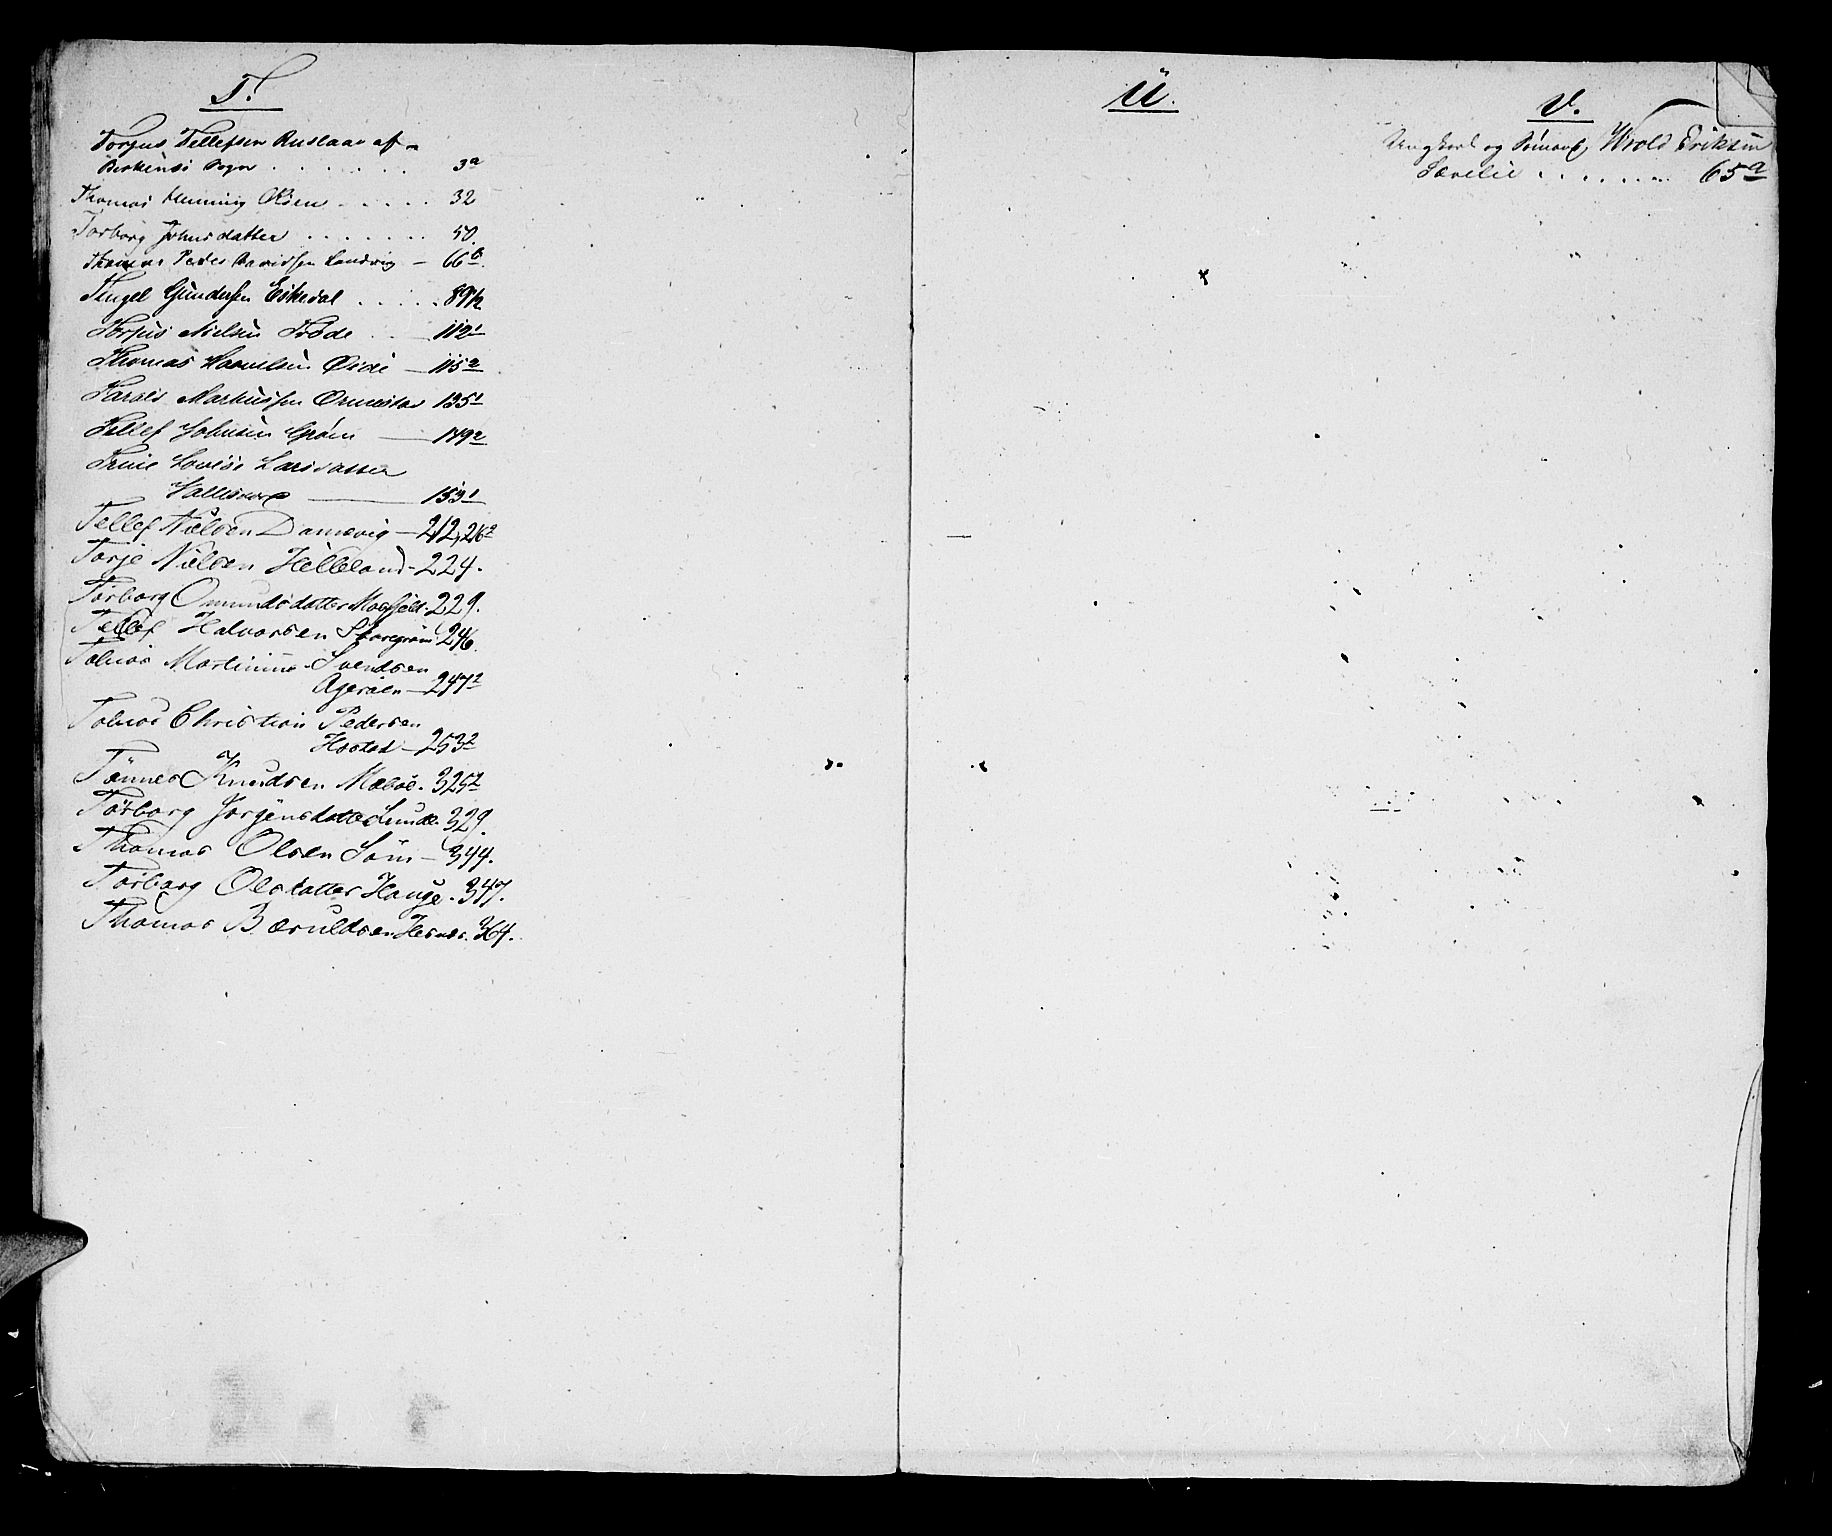 T.
Torjus Tellefsen Rislaae af
Birkenæs Sogn . . . . . . . 3a
Thomas Henning Olsen . . . . . 32
Torborg Johnsdatter . . . . . . . 50.
Thomas Peder Davidsen Landvig — 66b.
Gundersen Eikedal . . . . . 89½
Torjus Nielsen Trøde . . — 112 1
Thomas Eide — 115 2
Tarald Markussen Ormestad 135 1
Tellef Johnsen Grøm — 149 2
Trine Lovise Larsdatter
— 153 1
Tellef Nielsen Damsvig — 212, 216 2
Torje Nielsen Helleland - 224.
Torborg Omundsdatter Moefjeld. 229.
Tellef Halvorsen Storegrøm 246.
Tobias Martinius Svendsen
Agerøen — 247 2
Tobias Christian Pedersen
Hasted — 253 2
Tønnes Knudsen Mæbøe. 325 2
Torborg Jørgensdatter Lunde. 329.
Thomas Olsen Søm — 344.
Torborg Olsdatter Hauge. 347.
Thomas Bæruldsen Hesnes. 364.
Ü.
V.
Ungkarl og Sømand Wrold Eriksen
Lærelie . . . . . . . 65a